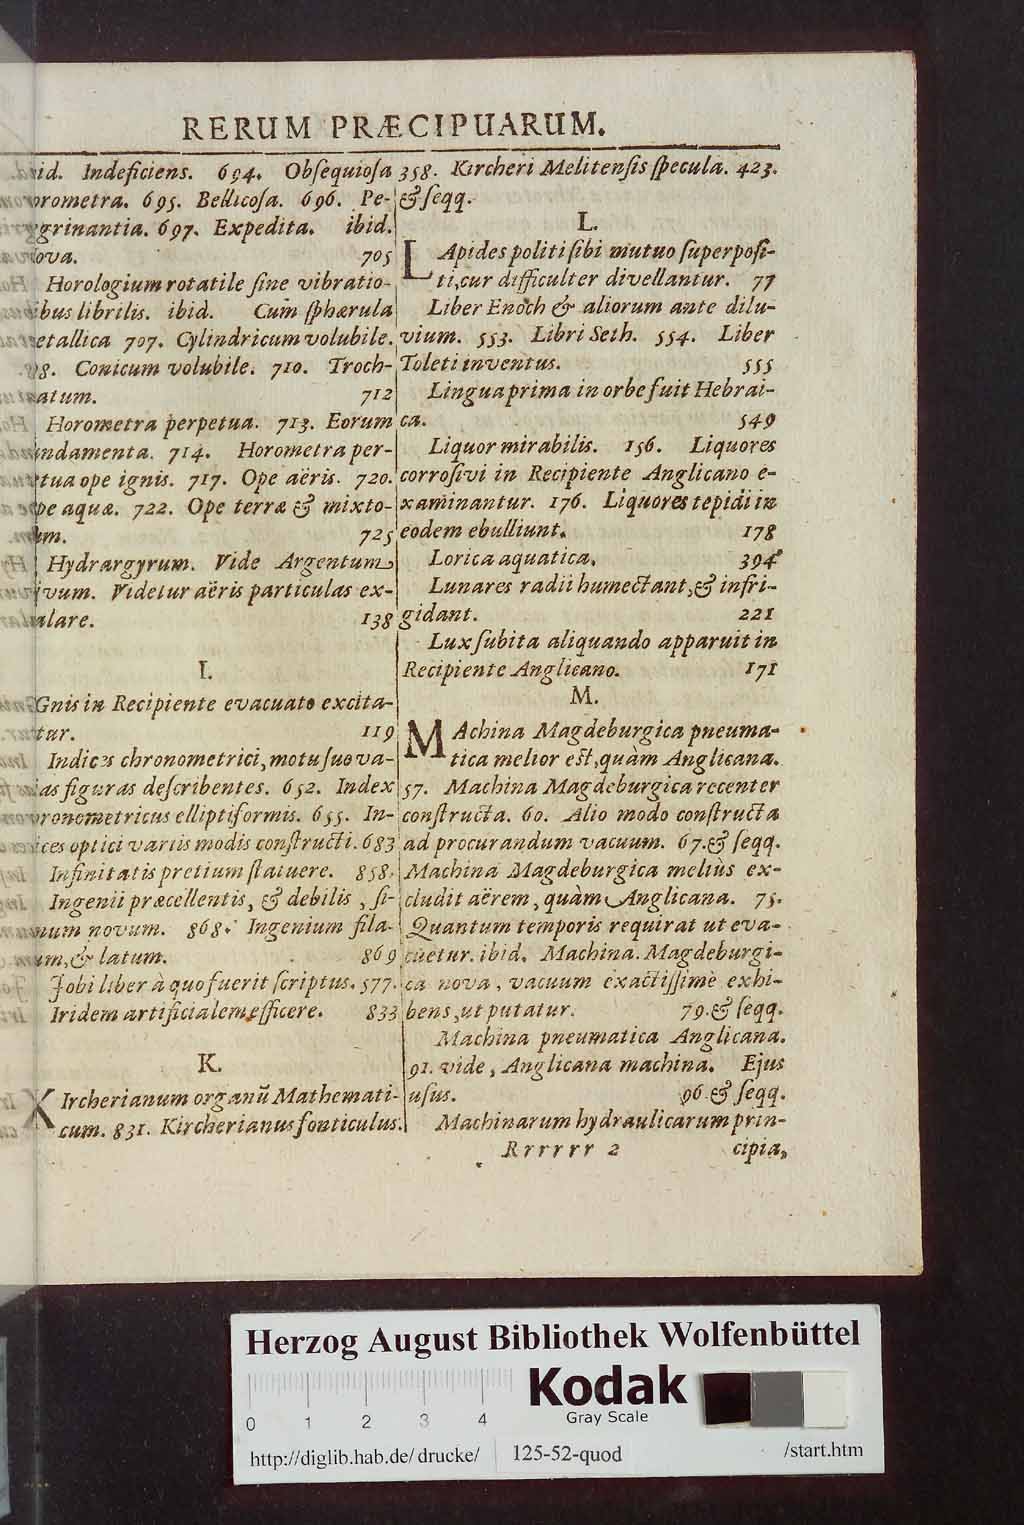 RERUM PRÆCIPUARUM.
id. Indeficiens. 694. Obſequioſa
rometra. 695. Bellicoſa. 696. Pe-
grinantia. 697. Expedita. ibid.
ova. 705
Horologium rotatile ſine vibratio-
bus librilis. ibid. Cum ſphærula
etallica 707. Cylindricum volubile.
8. Conicum volubile. 710. Troch-
atum. 712
Horometra perpetua. 713. Eorum
ndamenta. 714. Horometra per-
tua ope ignis. 717. Ope aëris. 720.
pe aquæ. 722. Ope terræ & mixto-
um. 725
Hydrargyrum. Vide Argentum
vum. Videtur aëris particulas ex-
alare. 138
I.
Gnis in Recipiente evacuato excita-
tur. 119
Indices chronometrici, motu ſuo va-
ias figuras deſcribentes. 652. Index
ronometricus elliptiformis. 655. In-
ices optici variis modis conſtructi. 683
Infinitatis pretium ſtatuere. 858.
Ingenii præcellentis, & debilis, ſi-
num novum. 868. Ingenium fila-
um, & latum. 869
Jobi liber à quo fuerit ſcriptus. 577.
Iridem artificialem efficere. 833
K.
KIrcherianum organũ Mathemati-
cum. 831. Kircherianus fonticulus.
358. Kircheri Melitenſis ſpecula. 423.
& ſeqq.
L.
LApides politi ſibi mutuo ſuperpoſi-
ti, cur difficulter divellantur. 77
Liber Enoch & aliorum ante dilu-
vium. 553. Libri Seth. 554. Liber
Toleti inventus. 555
Lingua prima in orbe fuit Hebrai-
ca. 549
Liquor mirabilis. 156. Liquores
corroſivi in Recipiente Anglicano e-
xaminantur. 176. Liquores tepidi in
eodem ebulliunt. 178
Lorica aquatica. 394
Lunares radii humectant, & infri-
gidant. 221
Lux ſubita aliquando apparuit in
Recipiente Anglicano. 171
M.
MAchina Magdeburgica pneuma-
tica melior eſt, quàm Anglicana.
57. Machina Magdeburgica recenter
conſtructa. 60. Alio modo conſtructa
ad procurandum vacuum. 67. & ſeqq.
Machina Magdeburgica meliùs ex-
cludit aërem, quàm Anglicana. 75.
Quantum temporis requirat ut eva-
cuetur. ibid. Machina Magdeburgi-
ca nova, vacuum exactiſſimè exhi-
bens, ut putatur. 79. & ſeqq.
Machina pneumatica Anglicana.
91. vide, Anglicana machina. Ejus
uſus. 96. & ſeqq.
Machinarum hydraulicarum prin-
Rrrrrr 2 cipia,
Herzog August Bibliothek Wolfenbüttel
0 1 2 3 4
Kodak
Gray Scale
http://diglib.hab.de/drucke/ 125-52-quod /start.htm